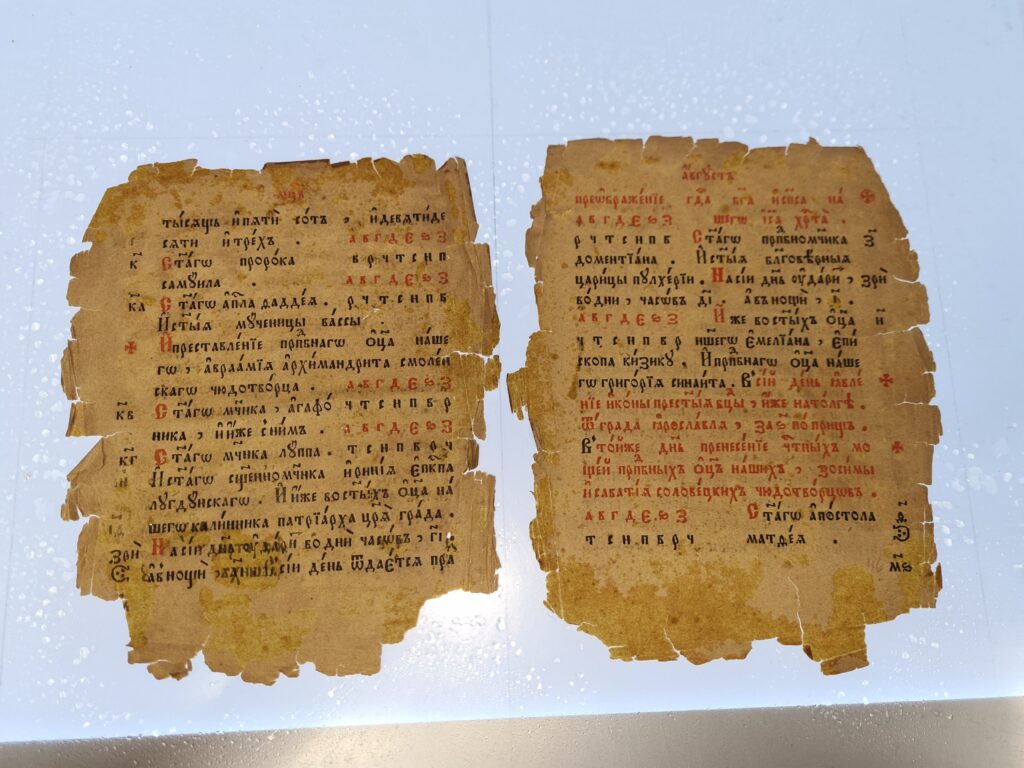 мц҃ъ
ты́сѧщъ и҆ пѧти́ сѡ́тъ , и҆ девѧти́де
сѧти и҆ тре́хъ . а в г д є ѕ з
к҃ Ст҃а́гѡ проро́ка в р ч т с н п
самуи́ла . а в г д є ѕ з
к҃а Ст҃а́гѡ а҆пⷭ҇ла ѳадде́ѧ . р ч т с н п в
И҆ ст҃ы́ѧ мꙋ́ченицы ва́ссы
И҆ преставле́нїе прпⷣбнагѡ ѻ҆ц҃а̀ на́ше
гѡ , а҆враа́мїѧ а҆рхїмандри́та смоле́н
скагѡ чюдотво́рца . а в г д є ѕ з
к҃в Ст҃а́гѡ мч҃нка , а҆гаѳо́ ч т с н п в р
ника , и҆ и҆́же с ни́мъ . а в г д є ѕ з
к҃г Ст҃а́гѡ мч҃нка лꙋ́ппа . т с н п в р ч
И҆ ст҃а́гѡ сщ҃е́нномч҃нка и҆рине́ѧ є҆пⷭ҇кпа
лꙋгдꙋ́нскагѡ . И҆ и҆́же во ст҃ы́хъ ѻ҆ц҃а̀ на́
шегѡ калли́ника патрїа́рха цр҃ѧ̀ гра́да .
зрѝ На сі́й дн҃ь во днѝ часѡ́въ , г҃і
а҆ в нощѝ , сі́й де́нь ѿдае́тсѧ пра
а҆́ѵгꙋстъ
преѡбраже́нїе гдⷭ҇а бг҃а и҆ сп҃са на́
а в г д є ѕ з шегѡ і҆и҃са хрⷭ҇та̀ .
р ч т с н п в Ст҃а́гѡ прпⷣбномч҃нка з҃
доментїа́на . И҆ ст҃ы́ѧ бл҃гове́рныѧ
цари́цы пꙋлхе́рїи . На сі́й дн҃ь оу҆да́ри , зрѝ
во днѝ , часѡ́въ д҃і . а҆ в нощѝ , і҃ .
а в г д є ѕ з И҆́же во ст҃ы́хъ ѻ҆ц҃а̀ и҃
ч т с н п в р на́шегѡ є҆мелїа́на , є҆пи́
скопа кизи́кꙋ . И҆ прпⷣбнагѡ ѻ҆ц҃а̀ на́ше
гѡ григо́рїѧ сина́ита . В сі́й де́нь ꙗ҆вле́
нїе и҆ко́ны прест҃ы́ѧ бц҃ы , и҆́же на то́лгѣ .
ѿ гра́да ꙗ҆росла́влѧ , за ѕ҃ по́прищъ .
В то́йже дн҃ь пренесе́нїе чⷭ҇тны́хъ мо
ще́й прпⷣбныхъ ѻ҆ц҃ъ на́шихъ , зоси́мы
и҆ савáтїѧ солове́цкихъ чюдотво́рцѡвъ .
а в г д є ѕ з Ст҃а́гѡ а҆по́стола
т с н п в р ч матѳе́ѧ .
м҃ѕ